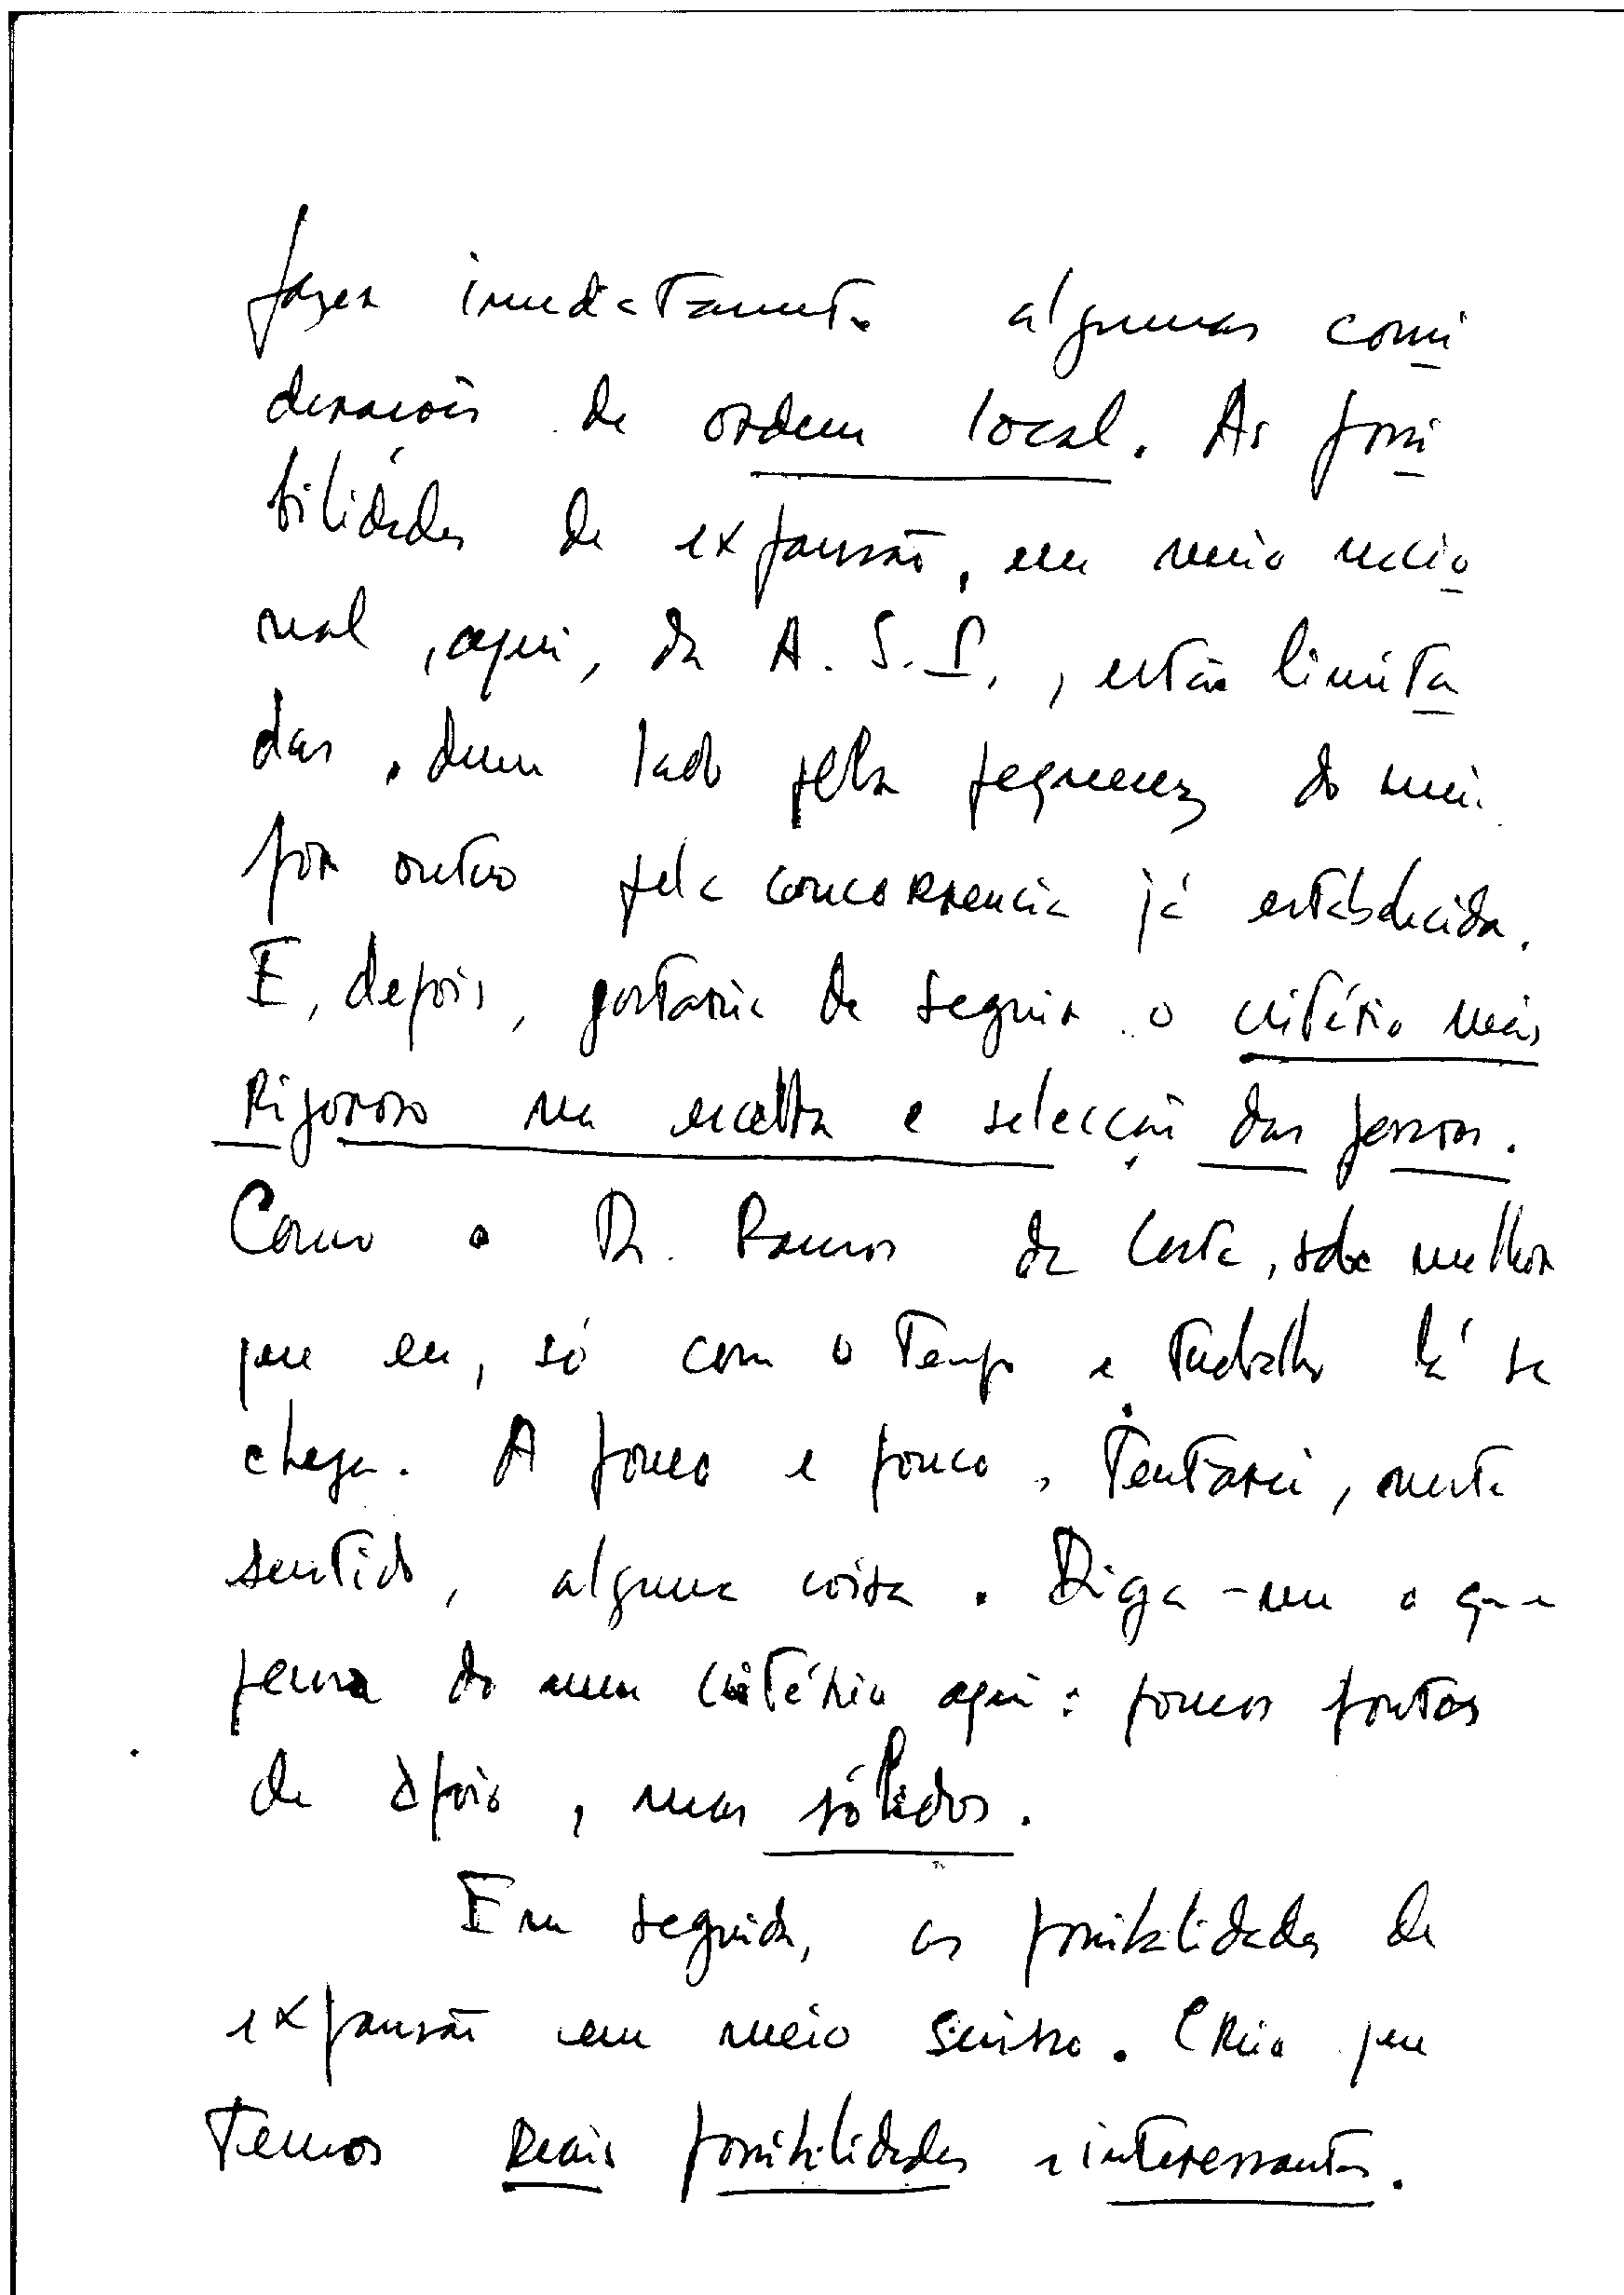 fazer imediatamente algumas consi
derações de ordem local. As possi
bilidades de expansão, em meio nacio
nal, aqui, da A. S. P., estão limita
das, dum lado pela pequenez do meio
por outro pela concorrencia já estabelecida.
E, depois, gostaria de seguir o critério mais
rigoroso na escolha e selecção das pessoas.
Como o Dr. Ramos da Costa, sabe melhor
que eu, só com o tempo e trabalho lá se
chega. A pouco e pouco, tentarei, neste
sentido, alguma coisa. Diga-me o que
pensa do meu critério aqui: poucos pontos
de apoio, mas sólidos.
Em seguida, as possibilidades de
expansão em meio suisso. Creio que
temos reais possibilidades e interessantes.